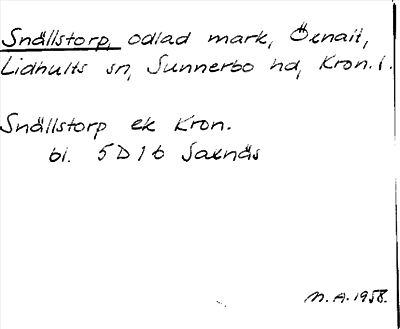 Snällstorp, odlad mark, Öxnalt,
Lidhults sn, Sunnerbo hd, Kron. l.
Snällstorp ek Kron.
bl. 5D1b Saxnäs
M.A. 1958.